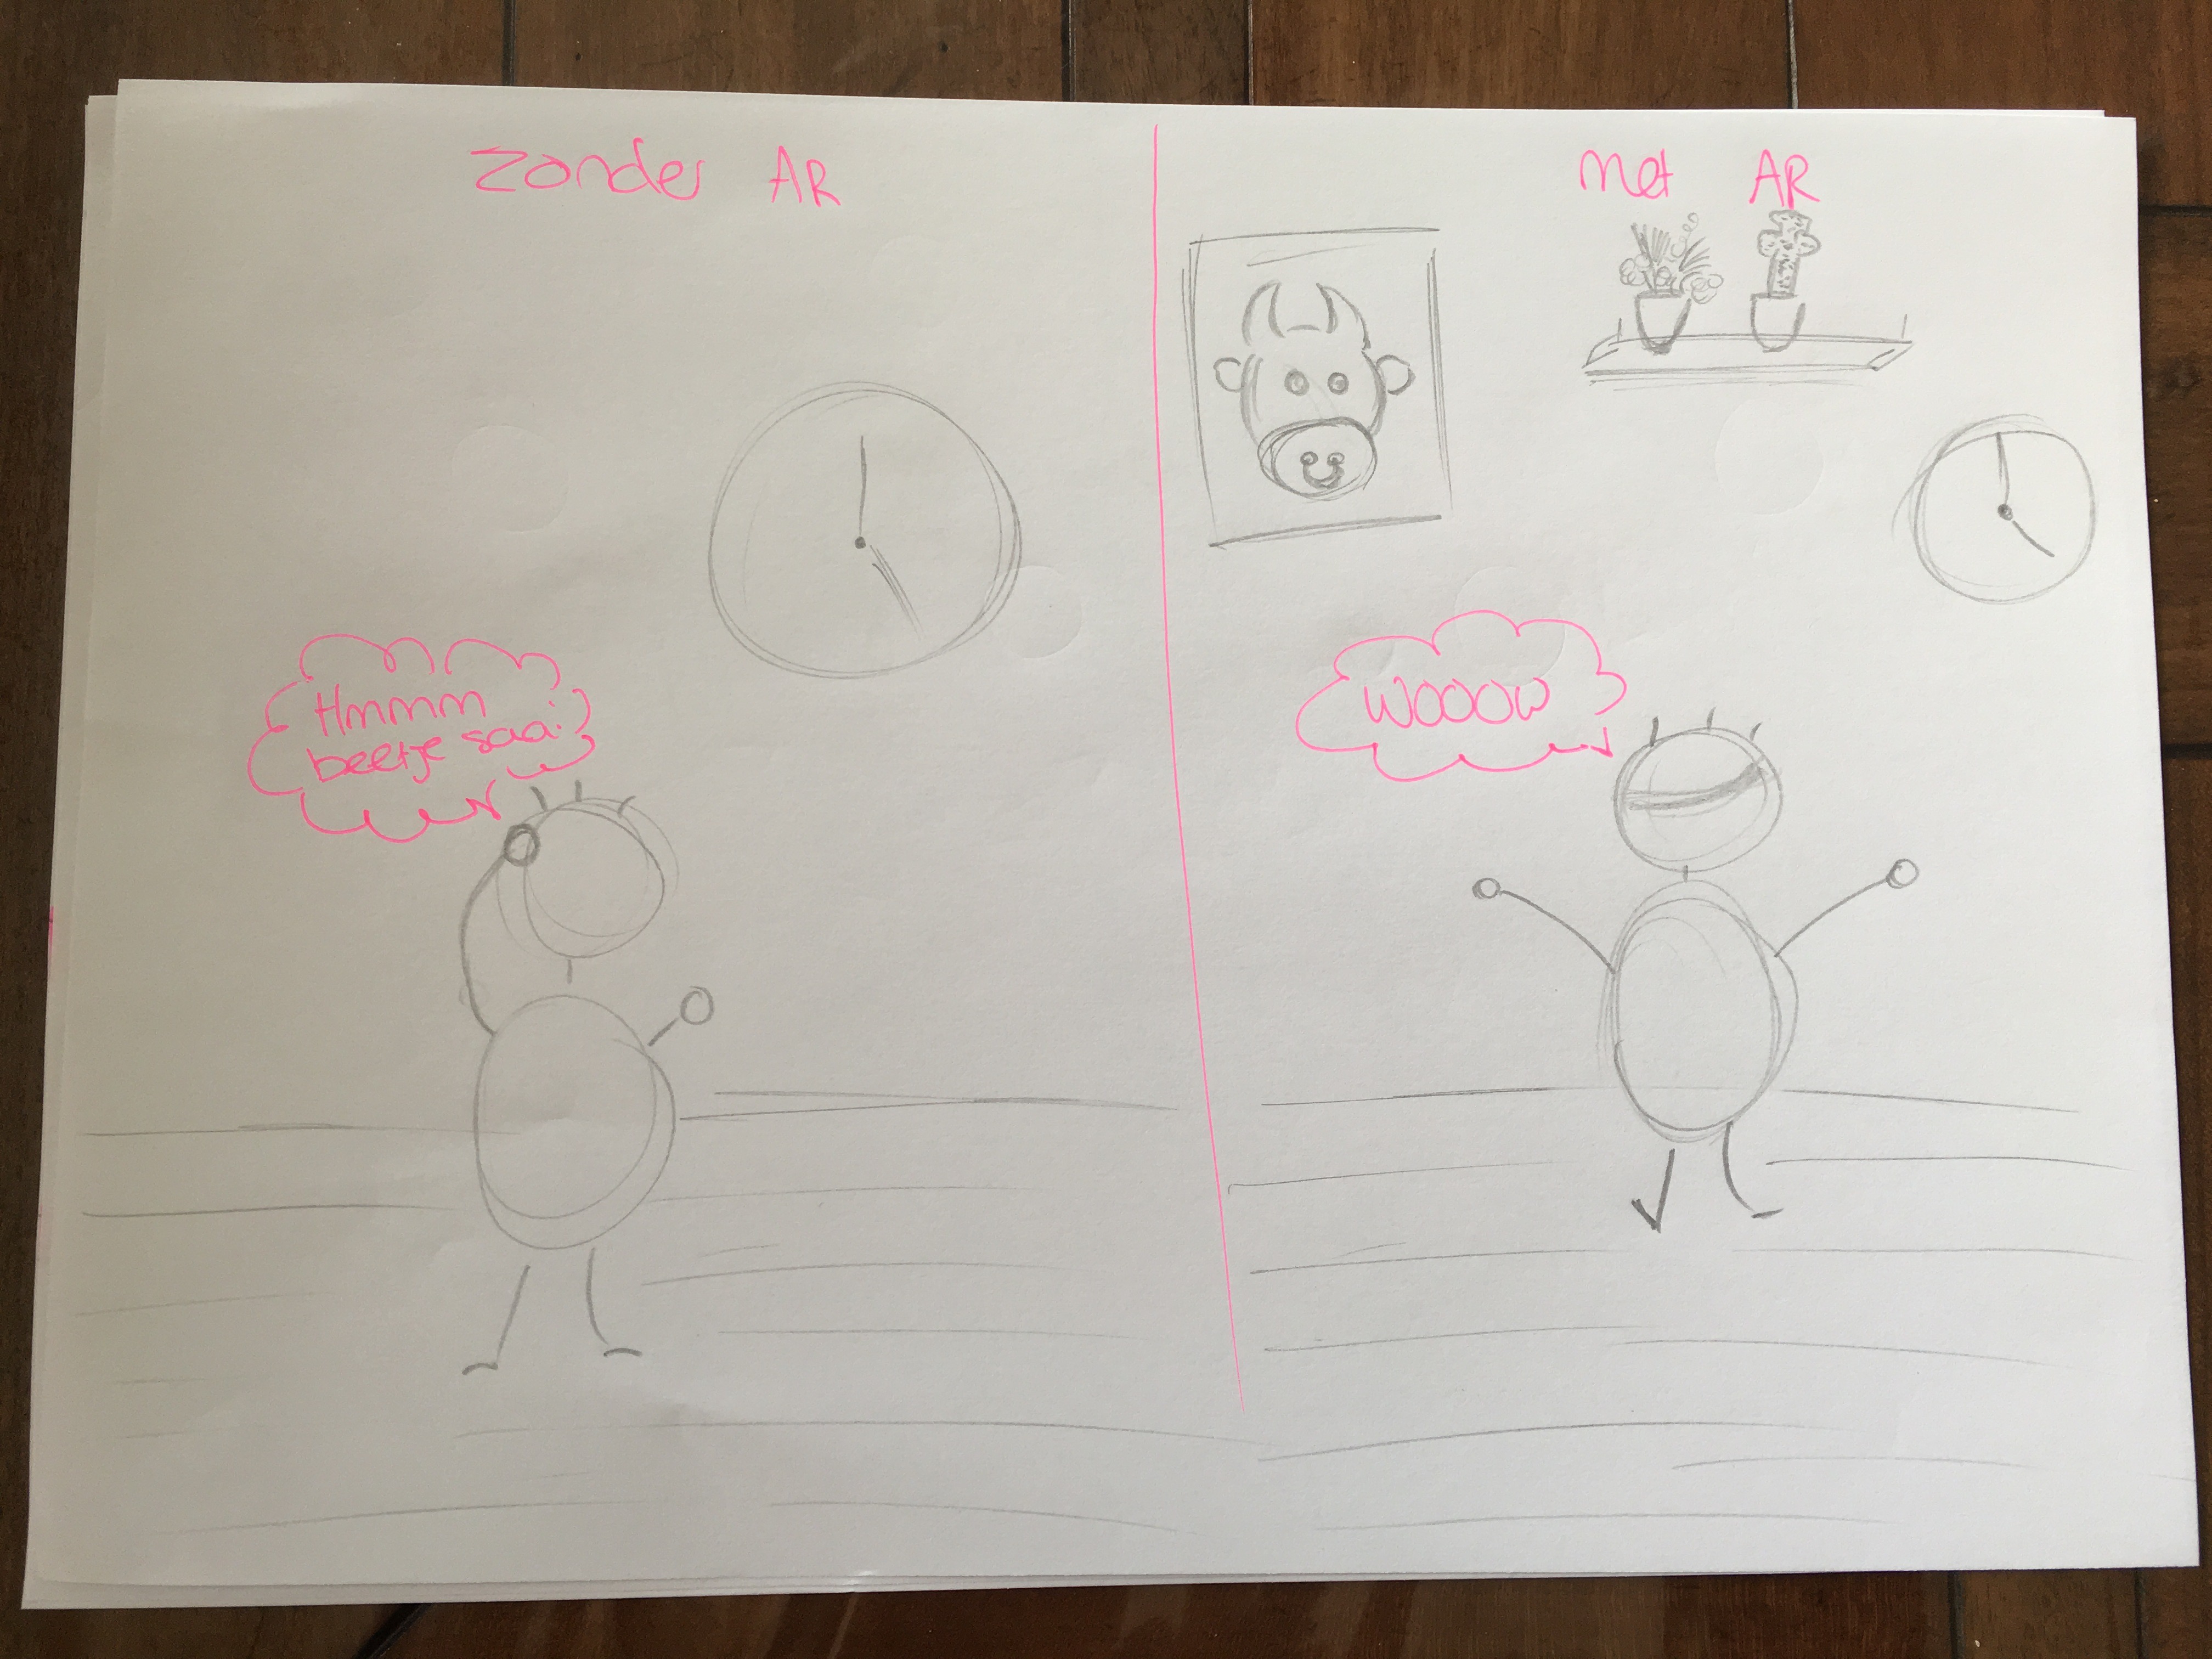 Zonder AR
Hmmm
beetje saai
Met AR
WOOOW